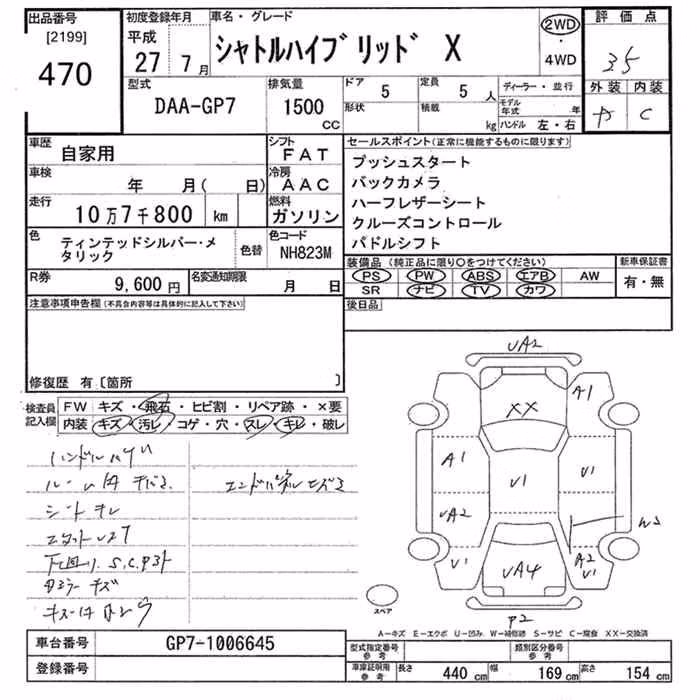 出品番号
[2199]
470
初度登録年月
平成
27 7月
車名・グレード
シャトルハイブリッド X
2WD
・
4WD
評価点
3.5
外装 内装
C
型式
DAA-GP7
排気量
1500
CC
ドア
5
定員
5 人
形状
積載
kg
ディーラー・並行
モデル年式 年
ハンドル 左・右
車歴
自家用
シフト
FAT
車検
年 月( 日)
冷房
AAC
走行
10万7千800 km
燃料
ガソリン
色
ティンテッドシルバー・メタリック
色替
色コード
NH823M
R券
9,600円
名変通知期限
月 日
セールスポイント(正常に機能するものに限ります)
プッシュスタート
バックカメラ
ハーフレザーシート
クルーズコントロール
パドルシフト
装備品(純正品に限り○をつけてください)
PS PW ABS エアB AW
SR ナビ TV カワ
新車保証書
有・無
後日品
注意事項申告欄(不具合内容等は具体的に記入して下さい)
修復歴 有〔箇所 〕
検査員記入欄
FW キズ・飛石・ヒビ割・リペア跡・×要
内装 キズ・汚レ・コゲ・穴・スレ・キレ・破レ
シート キレ
下回り. S.C.P3ト
エンドパネル
UA2
A1
XX
A1
U1
U1
UA2
W3
U1
UA4
A2
U1
P2
スペア
A―キズ E―エクボ U―凹み W―補修跡 S―サビ C―腐食 XX―交換済
車台番号
GP7-1006645
登録番号
型式指定番号
参考
類別区分番号
参考
車庫証明用
参考
長さ 440cm 幅 169cm 高さ 154cm